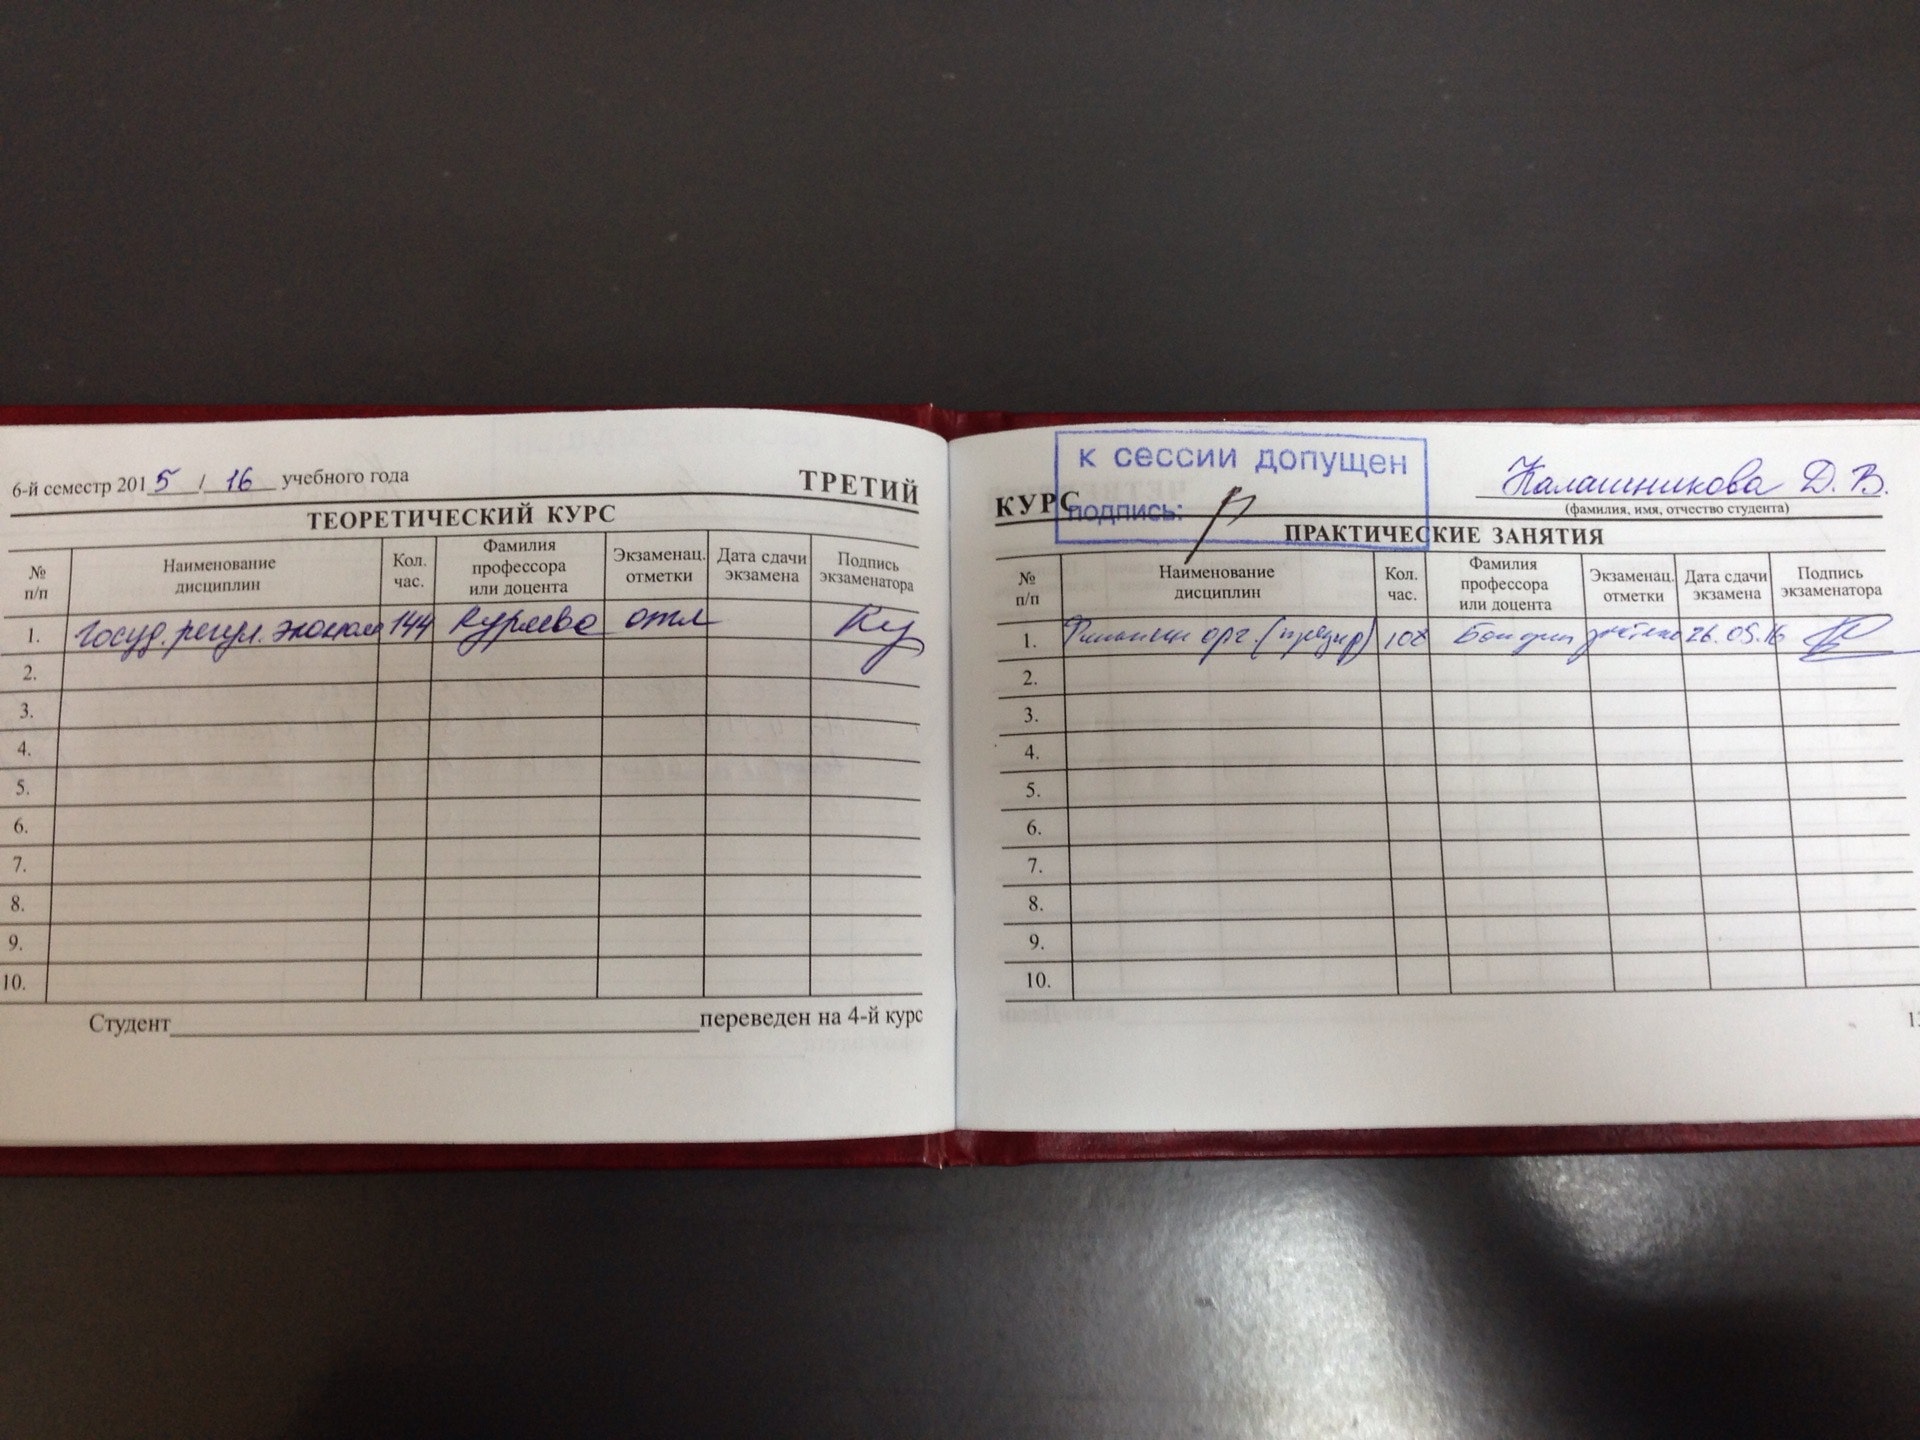 6-й семестр 2015/16 учебного года
ТРЕТИЙ
ТЕОРЕТИЧЕСКИЙ КУРС
№ п/п
Наименование дисциплин
Кол. час.
Фамилия профессора или доцента
Экзаменац. отметки
Дата сдачи экзамена
Подпись экзаменатора
1. Госуд. регул. эконом 144 Куряева отл
2.
3.
4.
5.
6.
7.
8.
9.
10.
Студент переведен на 4-й курс
КУРС
к сессии допущен
подпись:
Калашникова Д. В.
(фамилия, имя, отчество студента)
ПРАКТИЧЕСКИЕ ЗАНЯТИЯ
№ п/п
Наименование дисциплин
Кол. час.
Фамилия профессора или доцента
Экзаменац. отметки
Дата сдачи экзамена
Подпись экзаменатора
1. орг. 108 26.05.16
2.
3.
4.
5.
6.
7.
8.
9.
10.